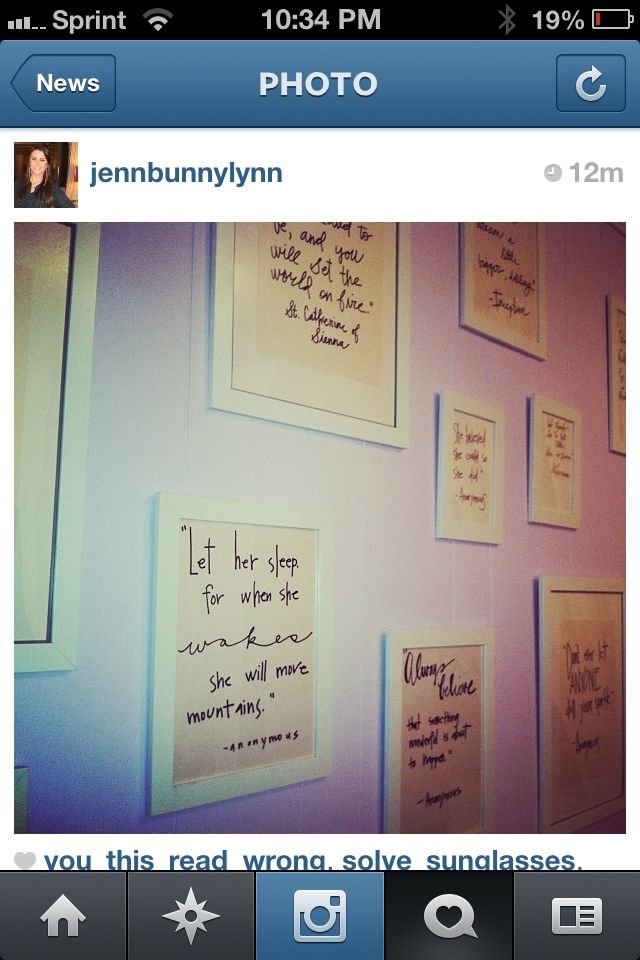 Sprint 10:34 PM 19%
News PHOTO
jennbunnylynn 12m
to
be, and you
will set the
world on fire."
St. Catherine of
Sienna
a
little
bigger, darling."
- Inception
"She believed
she could so
she did."
- Anonymous
"Let her sleep.
for when she
wakes
she will move
mountains."
- anonymous
"Always
believe
that something
wonderful is about
to happen."
- Anonymous
"Don't ever let
ANYONE
dull your sparkle."
- Anonymous
you_this_read_wrong, solve_sunglasses,